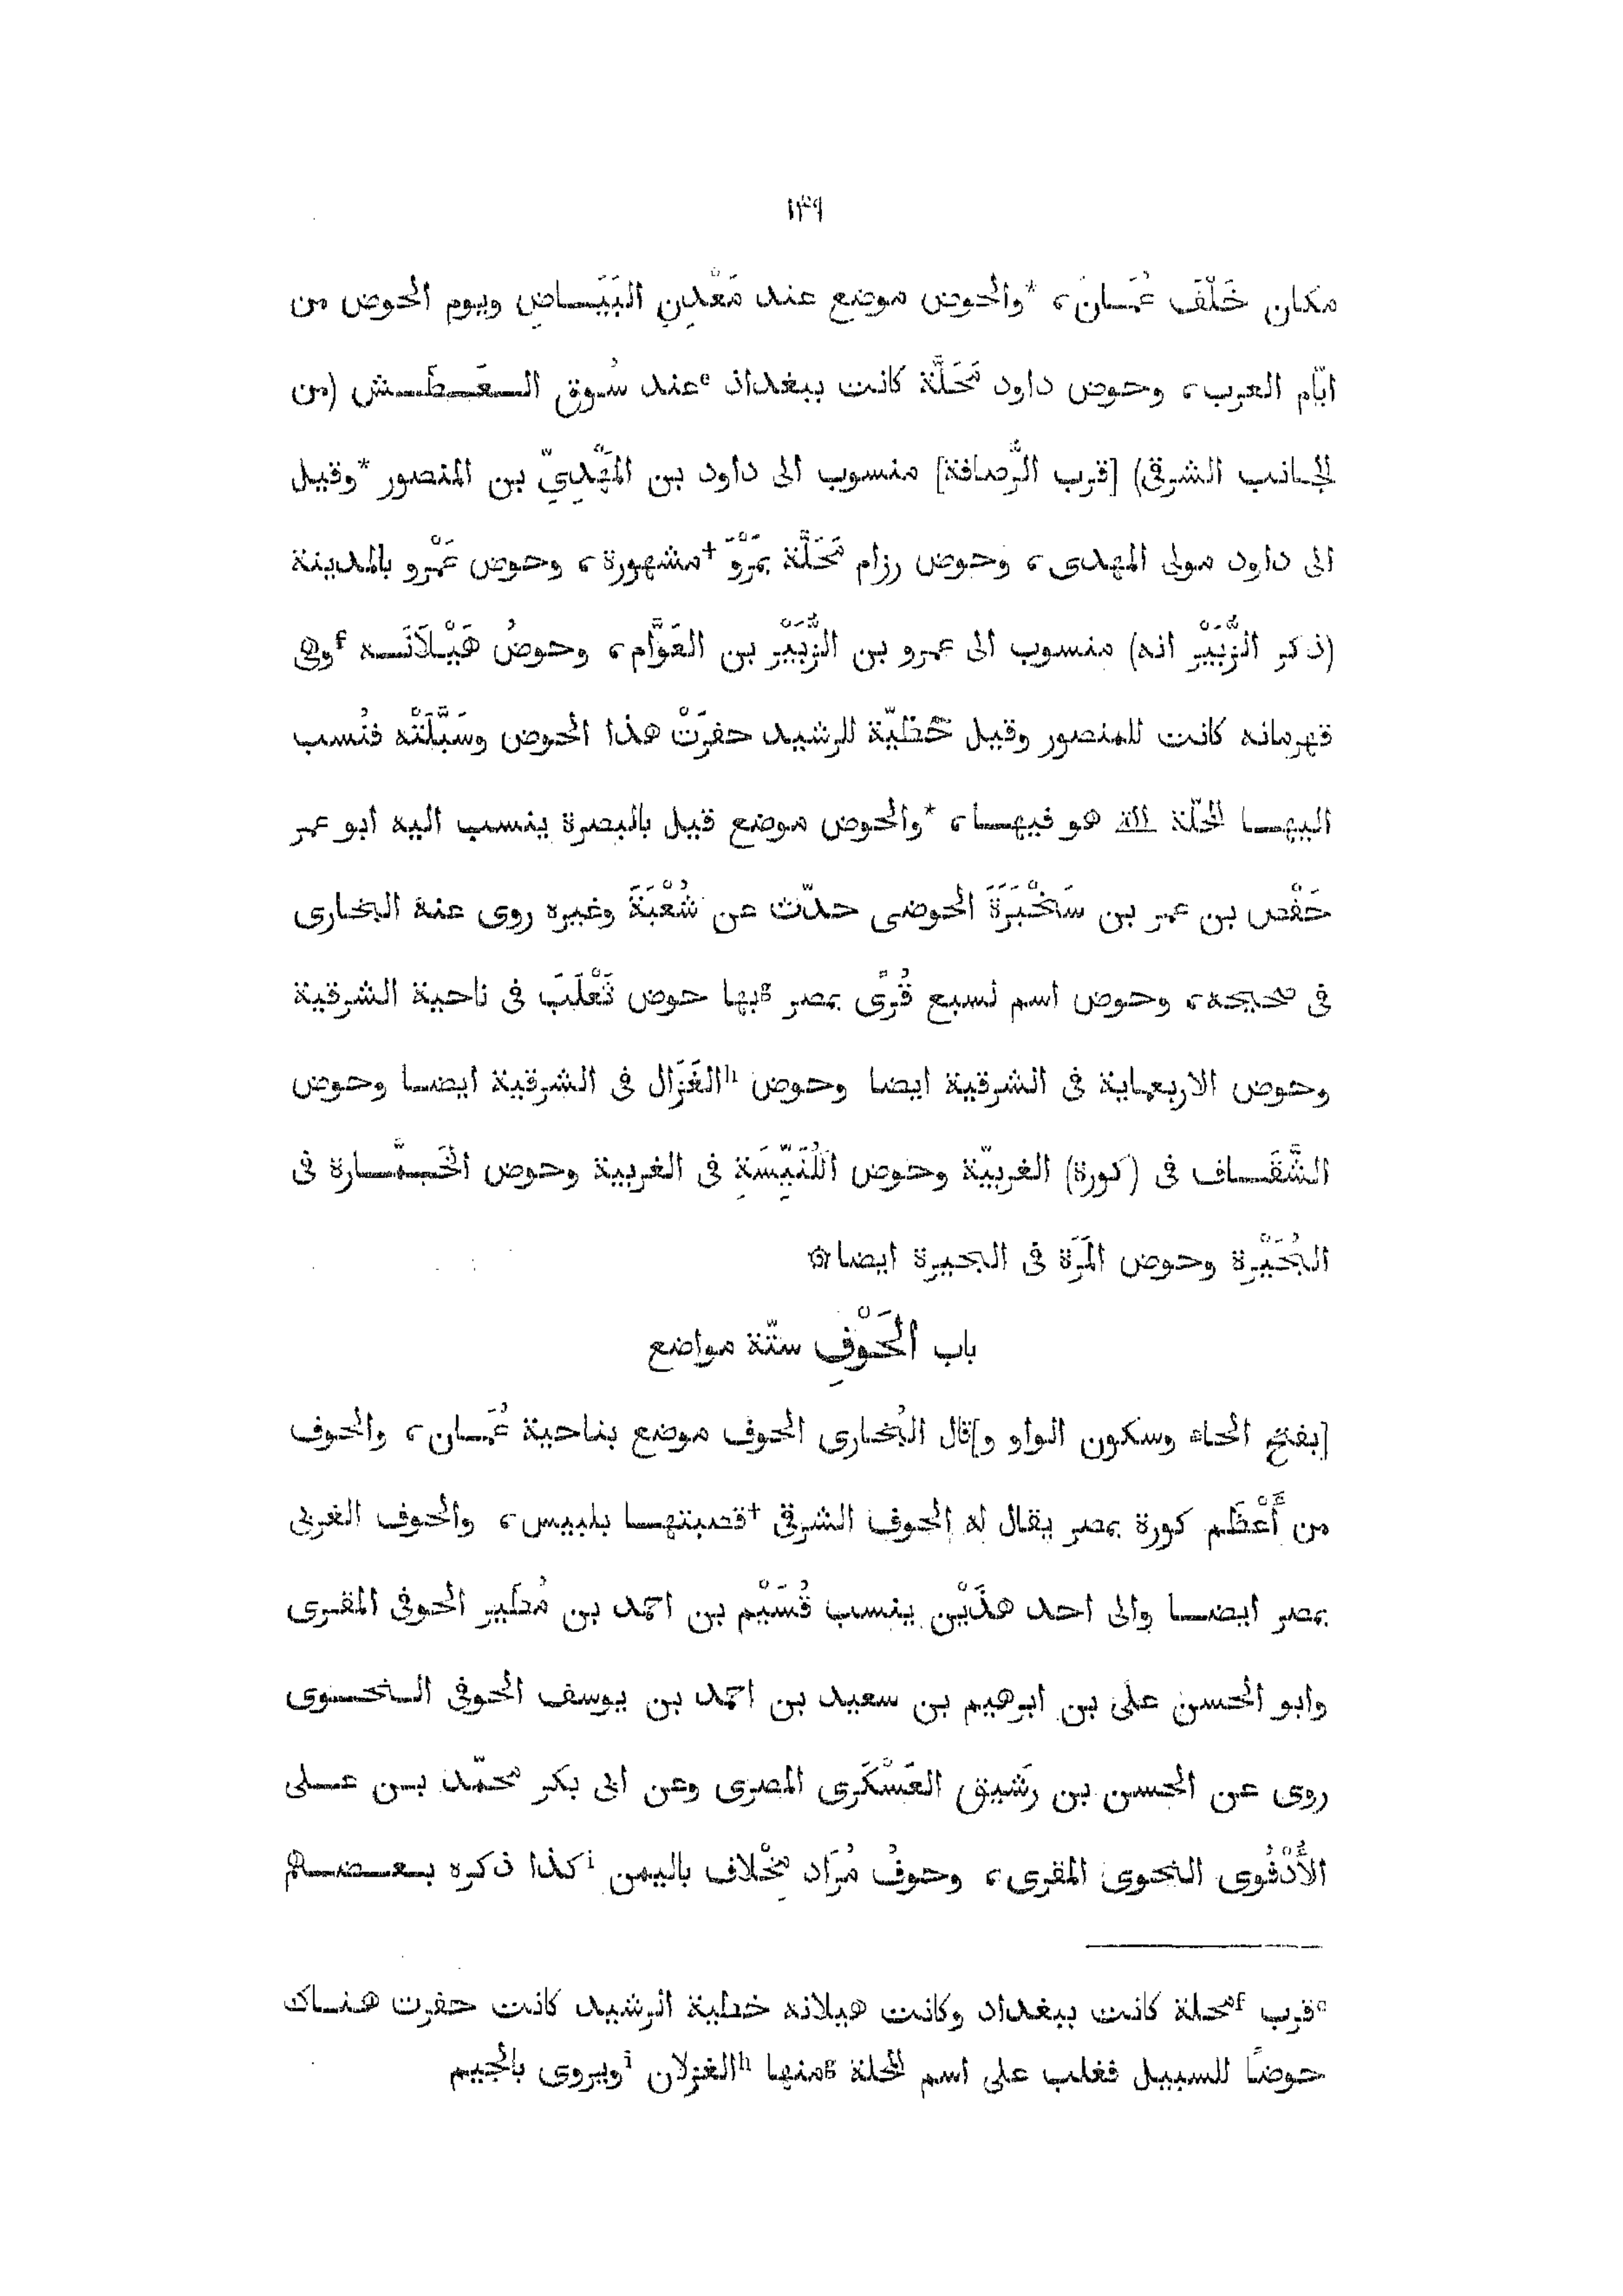 ١٤٩
مكان خَلْفَ عُمَان، *والحوض موضع عند مَعْدِنِ البَيَاضِ ويوم الحوض من
ايّام العرب، وحوض داود مَحَلَّة كانت ببغداد ᵉعند سُوق العَطَش (من
الجانب الشرقى) [قرب الرُّصافة] منسوب الى داود بن المَهْدِيّ بن المنصور *وقيل
الى داود مولى المهدى، وحوض رزام مَحَلَّة بمَرْوَ †مشهورة، وحوض عَمْرو بالمدينة
(ذكر الزُّبَيْر انه) منسوب الى عمرو بن الزُّبَيْر بن العَوَّام، وحوضُ هَيْلَانَه ᶠوهى
قهرمانه كانت للمنصور وقيل حَظيّة للرشيد حفرَتْ هذا الحوض وسَبَّلَتْه فنُسب
اليها المحلّة التى هو فيها، *والحوض موضع قيل بالبصرة ينسب اليه ابو عمر
حَفْص بن عمر بن سَخْبَرَةَ الحوضى حدّث عن شُعْبَةَ وغيره روى عنه البخارى
فى صحيحه، وحوض اسم لسبع قُرًى بمصر ᵍبها حوض ثَعْلَبَ فى ناحية الشرقية
وحوض الاربعماية فى الشرقية ايضا وحوض ʰالغَزَال فى الشرقية ايضا وحوض
الشَّقَاف فى (كورة) الغربيّة وحوض فى الغربية وحوض الخَمَّارة فى
البُحَيْرة وحوض المَرَة فى البحيرة ايضا۞
باب الحَوْفِ ستّة مواضع
[بفتح الحاء وسكون الواو و]قال البُخارى الحوف موضع بناحية عُمَان، والحوف
من أَعْظَم كورة بمصر يقال له الحوف الشرقى †قصبتها بلبيس، والحوف الغربى
بمصر ايضا والى احد هذَيْن ينسب قُسَيْم بن احمد بن مُطَير الحوفى المقرى
وابو الحسن على بن ابرهيم بن سعيد بن احمد بن يوسف الحوفى النحوى
روى عن الحسن بن رَشيق العَسْكَرى المصرى وعن ابى بكر محمّد بن على
الأُدْفُوى النحوى المقرى، وحوفُ مُرَاد مِخْلاف باليمن ⁱكذا ذكره بعضهم
ᵉقرب ᶠمحلة كانت ببغداد وكانت هيلانه حظية الرشيد كانت حفرت هناك
حوضًا للسبيل فغلب على اسم المحلة ᵍمنها ʰالغزلان ⁱويروى بالجيم